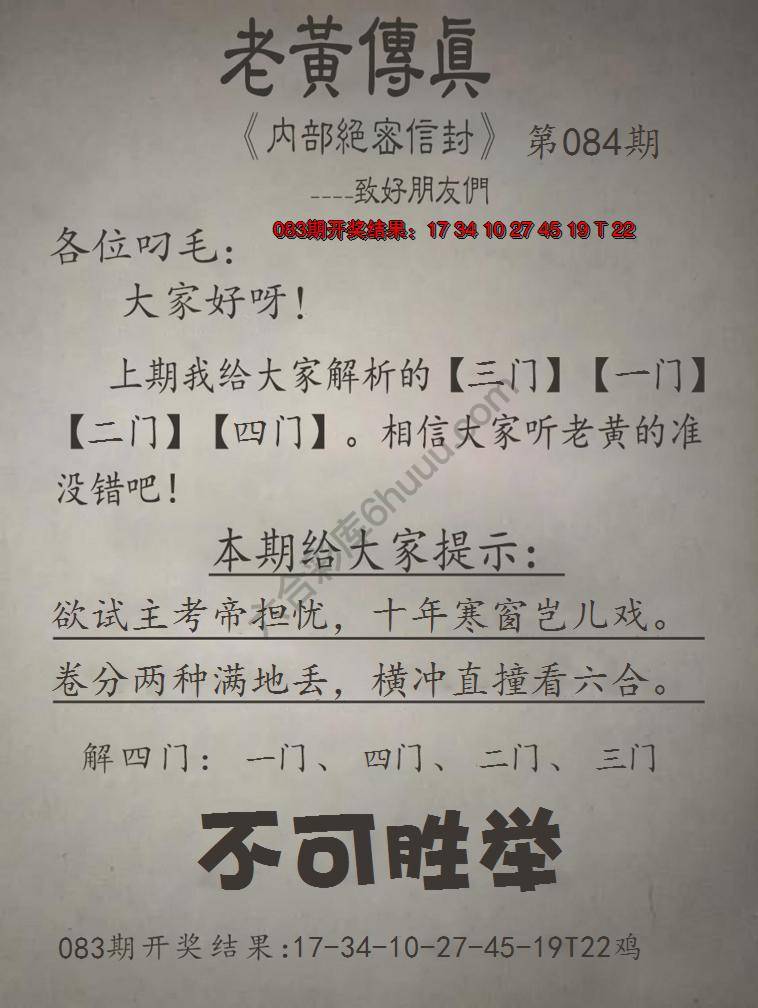 老黃傳真
《内部絕密信封》 第084期
----致好朋友們
083期开奖结果：17 34 10 27 45 19 T 22
各位叼毛：
大家好呀！
上期我给大家解析的【三门】【一门】
【二门】【四门】。相信大家听老黄的准
没错吧！
六合彩库6huuu.com
本期给大家提示：
欲试主考帝担忧，十年寒窗岂儿戏。
卷分两种满地丢，横冲直撞看六合。
解四门：一门、四门、二门、三门
不可胜举
083期开奖结果:17-34-10-27-45-19T22鸡